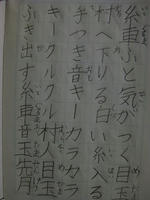 糸車ふと気がつく目玉
村へ下りる白い糸入る
手つき音キーカラカラ
キークルクル村人目玉
ふき出す糸車音玉先月